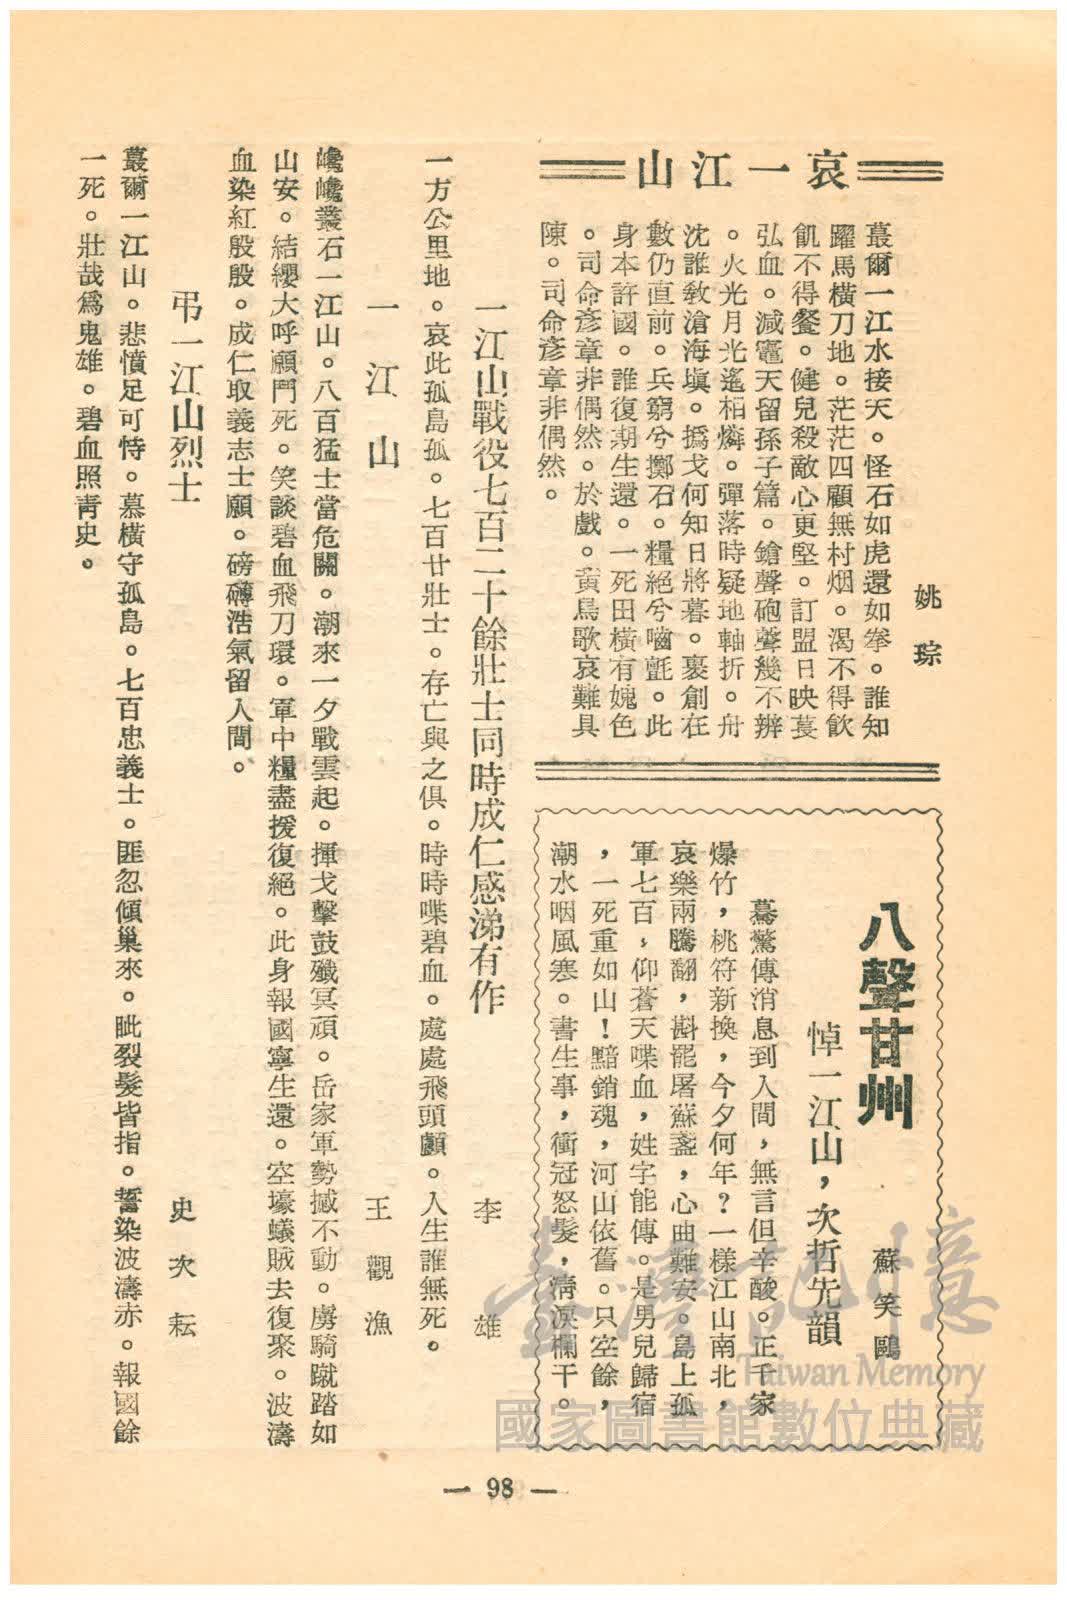 哀一江山
姚琮
蕞爾一江水接天。怪石如虎還如拳。誰知
躍馬橫刀地。茫茫四顧無村烟。渴不得飲
飢不得餐。健兒殺敵心更堅。訂盟日映萇
弘血。減竈天留孫子篇。鎗聲砲聲幾不辨
。火光月光遙相燐。彈落時疑地軸折。舟
沈誰敎滄海塡。撝戈何知日將暮。裹創在
數仍直前。兵窮兮擲石。糧絕兮嚙氈。此
身本許國。誰復期生還。一死田橫有媿色
。司命彥章非偶然。於戲。黃鳥歌哀難具
陳。司命彥章非偶然。
八聲甘州
蘇笑鷗
悼一江山，次哲先韻
驀驚傳消息到人間，無言但辛酸。正千家
爆竹，桃符新換，今夕何年？一樣江山南北，
哀樂兩騰翻，斟罷屠蘇盞，心曲難安。島上孤
軍七百，仰蒼天喋血，姓字能傳。是男兒歸宿
，一死重如山！黯銷魂，河山依舊。只空餘，
潮水咽風寒。書生事，衝冠怒髮，淸淚欄干。
一江山戰役七百二十餘壯士同時成仁感涕有作
李雄
一方公里地。哀此孤島孤。七百廿壯士。存亡與之俱。時時喋碧血。處處飛頭顱。人生誰無死。
一江山
王觀漁
巉巉叢石一江山。八百猛士當危關。潮來一夕戰雲起。揮戈擊鼓殲冥頑。岳家軍勢撼不動。虜騎蹴踏如
山安。結纓大呼顧鬥死。笑談碧血飛刀環。軍中糧盡援復絕。此身報國寧生還。空壕蟻賊去復聚。波濤
血染紅殷殷。成仁取義志士願。磅礴浩氣留人間。
弔一江山烈士
史次耘
蕞爾一江山。悲憤足可恃。慕橫守孤島。七百忠義士。匪忽傾巢來。眦裂髮皆指。誓染波濤赤。報國餘
一死。壯哉爲鬼雄。碧血照靑史。
— 98 —
臺灣記憶
Taiwan Memory
國家圖書館數位典藏